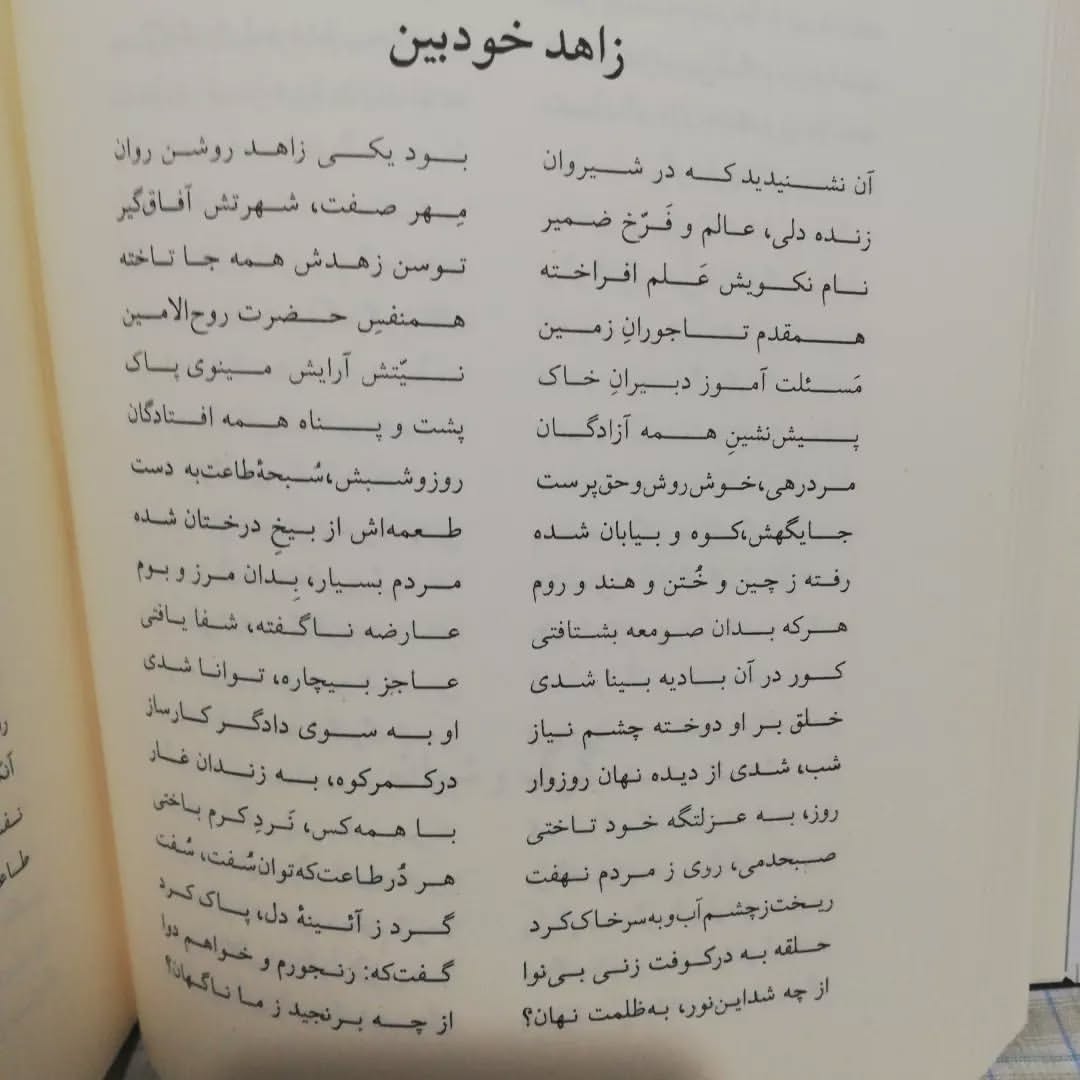 زاهد خودبین
آن نشنیدید که در شیروان بود یکی زاهد روشن روان
زنده دلی، عالم و فَرّخ ضمیر مِهر صفت، شهرتش آفاق‌گیر
نام نکویش عَلم افراخته توسن زهدش همه جا تاخته
همقدم تاجورانِ زمین همنفسِ حضرت روح‌الامین
مَسئلت آموز دبیرانِ خاک نیّتش آرایش مینوی پاک
پیش‌نشینِ همه آزادگان پشت و پناه همه افتادگان
مرد رهی، خوش روش و حق پرست روز و شبش، سُبحهٔ طاعت به دست
جایگهش، کوه و بیابان شده طعمه‌اش از بیخِ درختان شده
رفته ز چین و خُتن و هند و روم مردم بسیار، بِدان مرز و بوم
هر که بدان صومعه بشتافتی عارضه ناگفته، شفا یافتی
کور در آن بادیه بینا شدی عاجز بیچاره، توانا شدی
خلق بر او دوخته چشم نیاز او به سوی دادگر کارساز
شب، شدی از دیده نهان روزوار در کمر کوه، به زندان غار
روز، به عزلتگه خود تاختی با همه کس، نَردِ کرم باختی
صبحدمی، روی ز مردم نهفت هر دُر طاعت که توان سُفت، سُفت
ریخت ز چشم آب و به سر خاک کرد گرد ز آئینهٔ دل، پاک کرد
حلقه به در کوفت زنی بی‌نوا گفت که: رنجورم و خواهم دوا
از چه شد این نور، به ظلمت نهان؟ از چه برنجید ز ما ناگهان؟